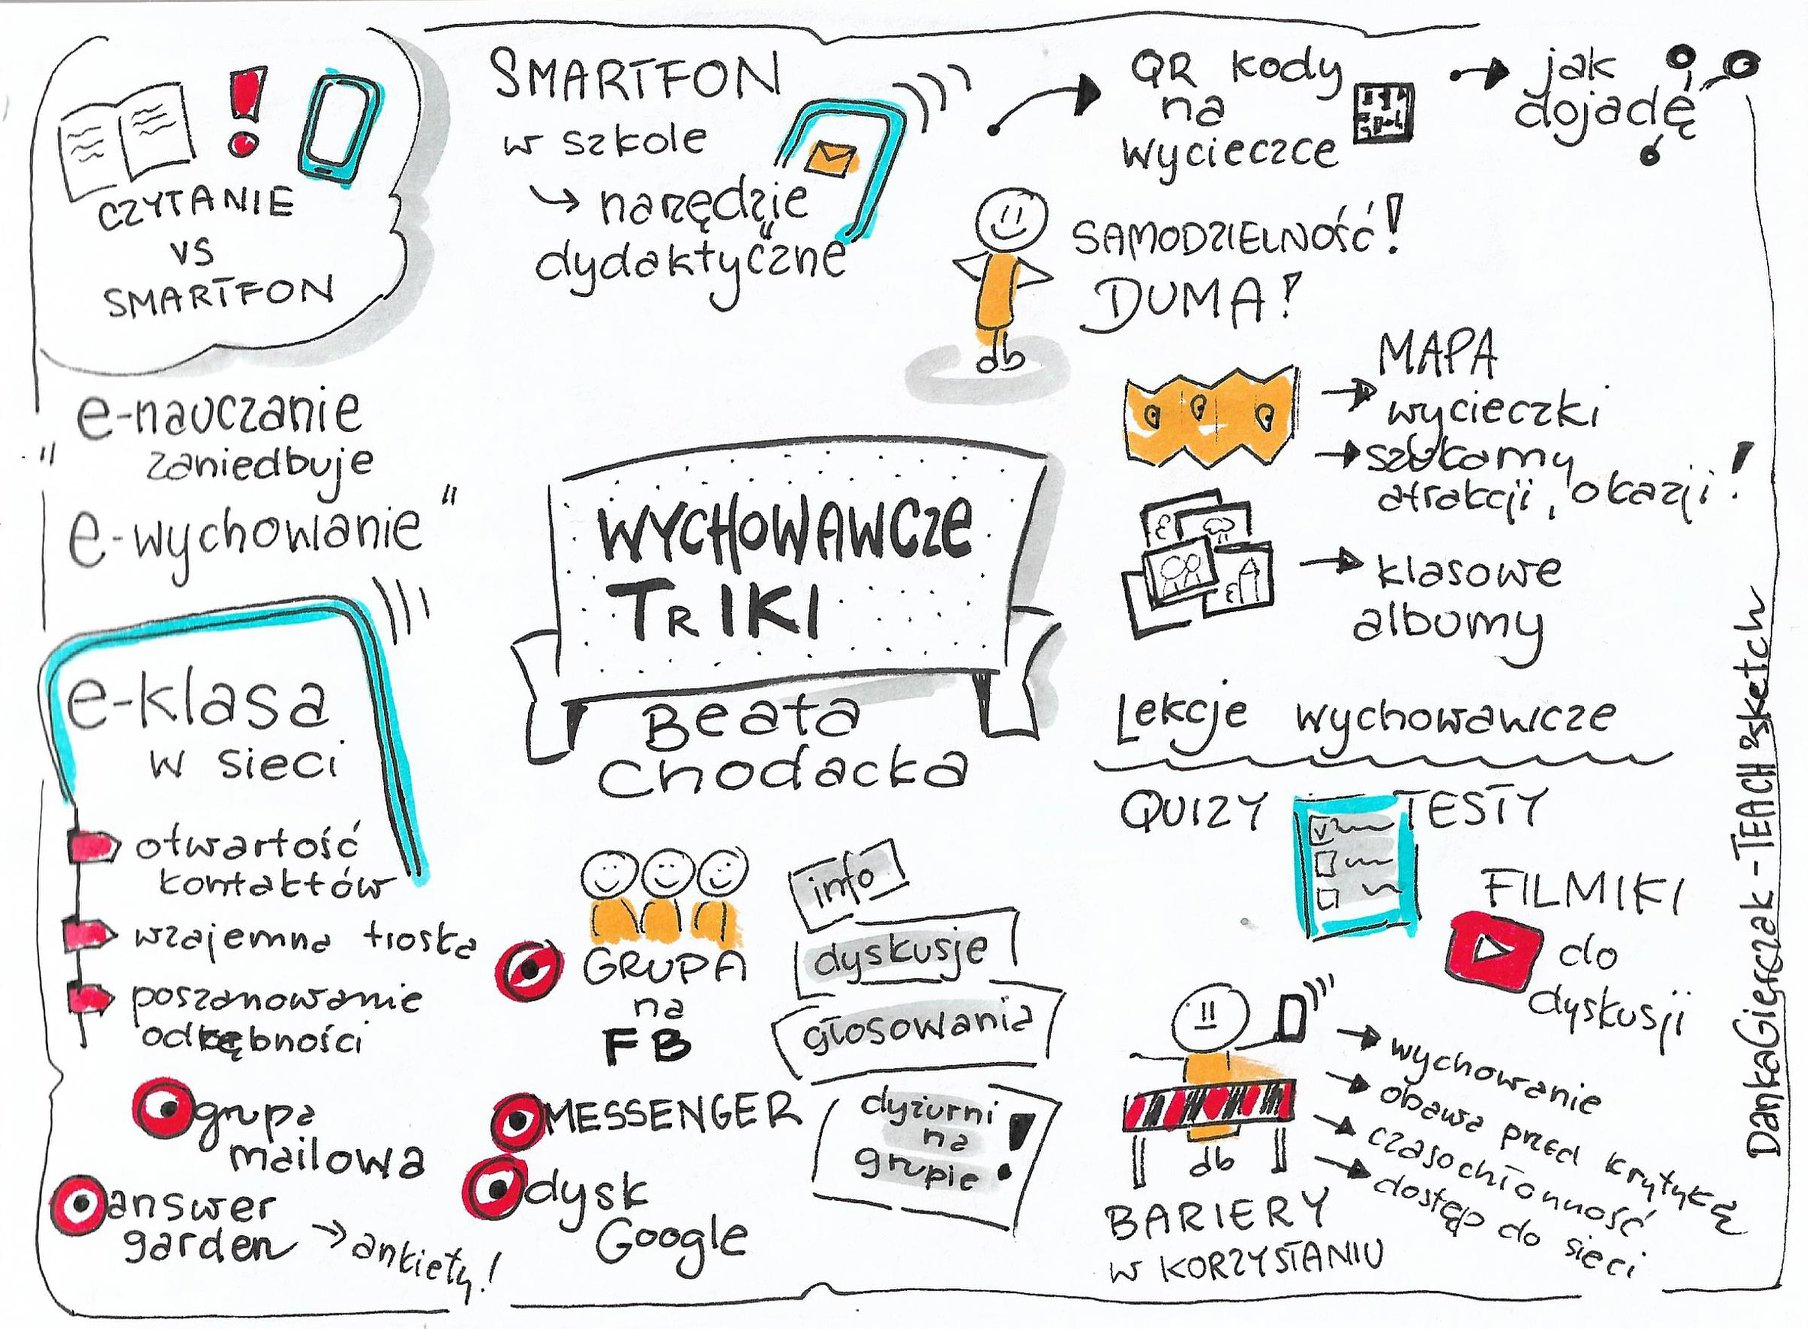 CZYTANIE
VS
SMARTFON
SMARTFON
w szkole
narzędzie
dydaktyczne
QR kody
na
wycieczce
jak
dojadę
SAMODZIELNOŚĆ!
DUMA!
MAPA
wycieczki
szukamy
atrakcji, okazji!
klasowe
albumy
e-nauczanie
"zaniedbuje
e-wychowanie"
WYCHOWAWCZE
TRIKI
Beata
Chodacka
e-klasa
w sieci
otwartość
kontaktów
wzajemna troska
poszanowanie
odrębności
grupa
mailowa
answer
garden → ankiety!
GRUPA
na
FB
info
dyskusje
głosowania
dyżurni
na
grupie!
MESSENGER
dysk
Google
Lekcje wychowawcze
QUIZY TESTY
FILMIKI
do
dyskusji
wychowanie
obawa przed krytyką
czasochłonność
dostęp do sieci
db
db
BARIERY
W KORZYSTANIU
DankaGierczak-TEACH&sketch